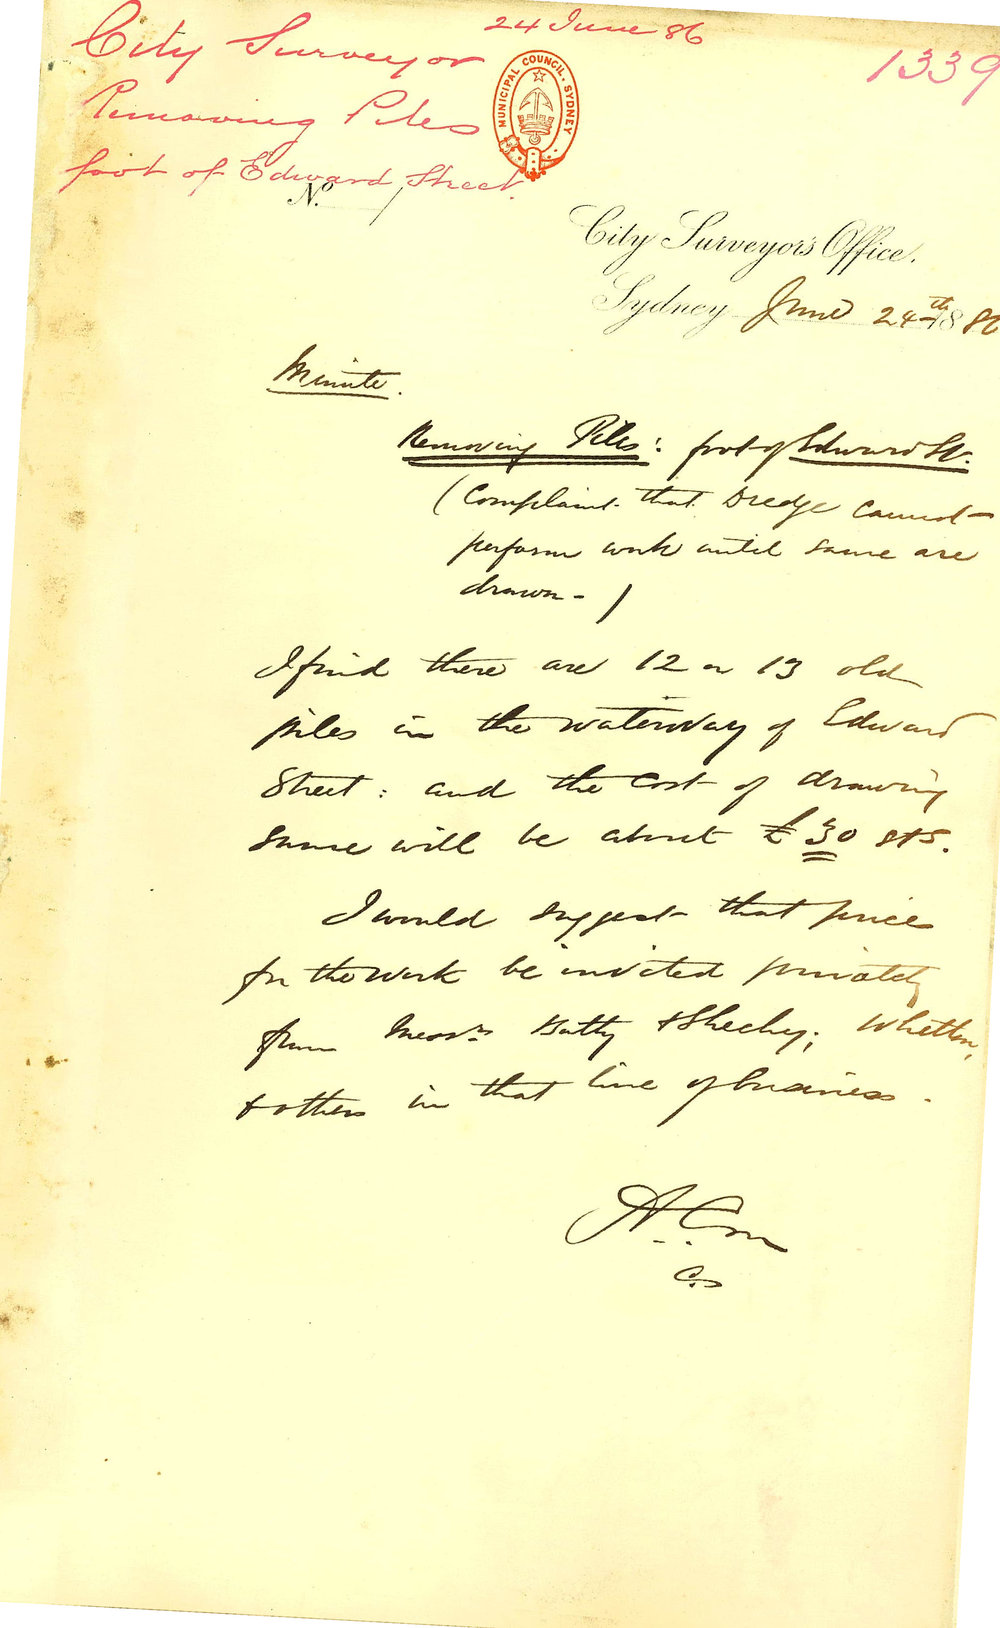 24 June 86
1339
City Surveyor
Removing Piles
foot of Edward Street.
MUNICIPAL COUNCIL. SYDNEY
No.
City Surveyor's Office.
Sydney June 24th 1886
Minute.
Removing Piles: foot of Edward St.
(Complaint that Dredge cannot
perform work until same are
drawn - )
I find there are 12 or 13 old
piles in the waterway of Edward
Street: and the cost of drawing
same will be about £30 stg.
I would suggest that prices
for the work be invited privately
from Messrs Batty & Sheehy; Whetton,
& others in that line of business.
C.S